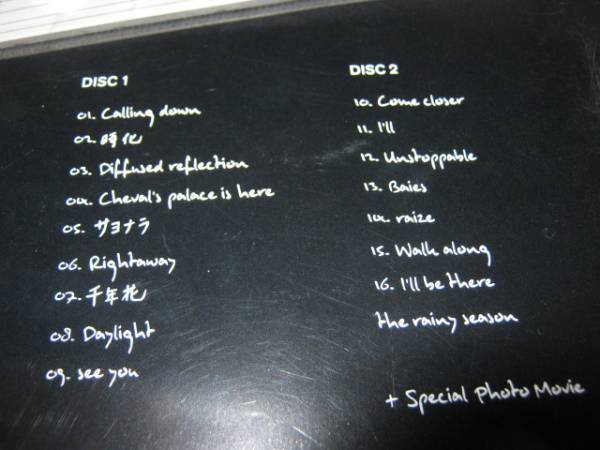 DISC 1
01. Calling down
02. 時化
03. Diffused reflection
04. Cheval's palace is here
05. サヨナラ
06. Rightaway
07. 千年花
08. Daylight
09. see you
DISC 2
10. Come closer
11. I'll
12. Unstoppable
13. Baies
14. raize
15. Walk along
16. I'll be there
the rainy season
+ Special Photo Movie